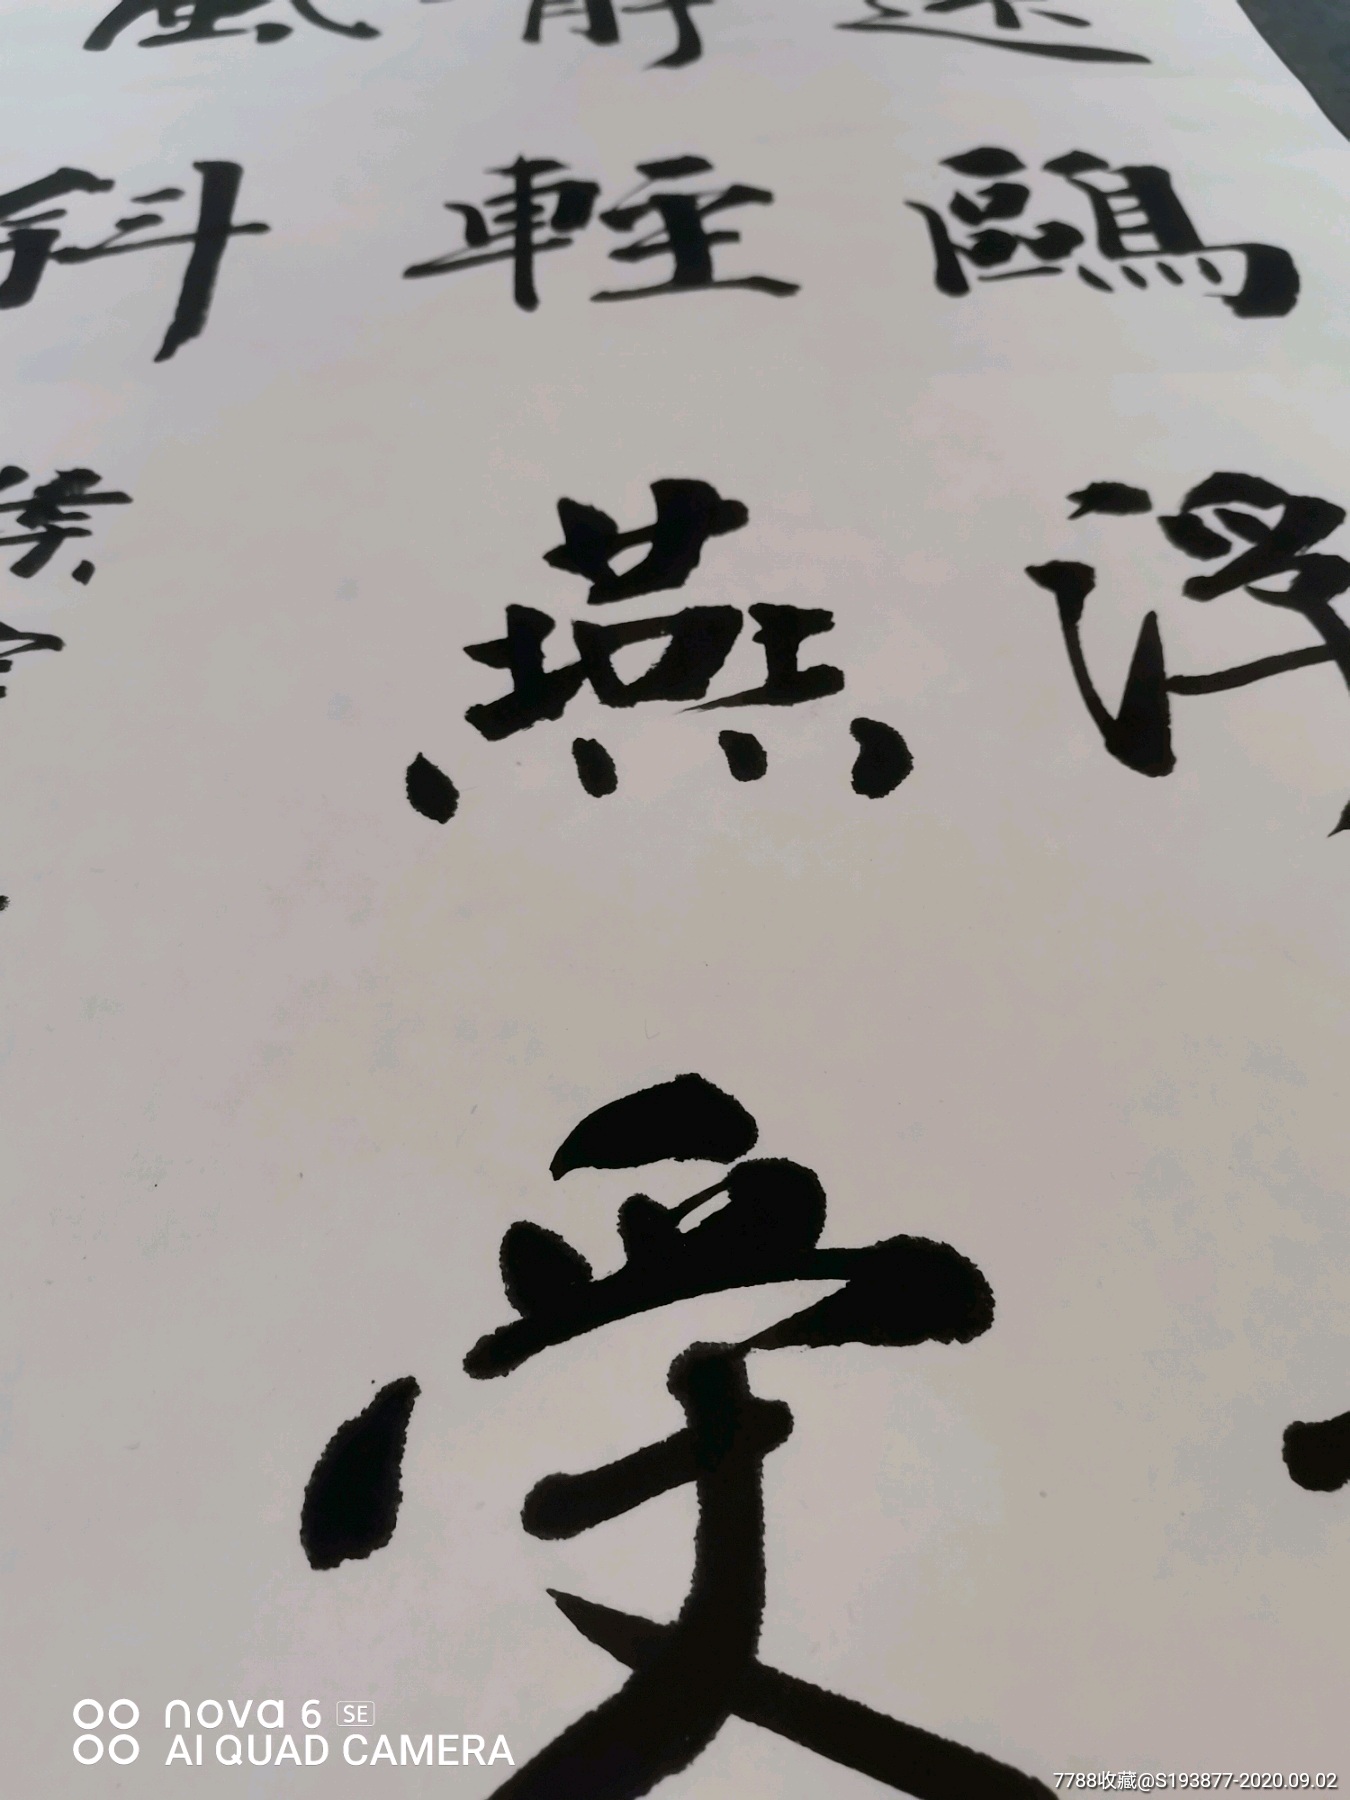 遠鷗浮
静輕燕受
風斜
nova 6 SE
AI QUAD CAMERA
7788收藏@S193877-2020.09.02